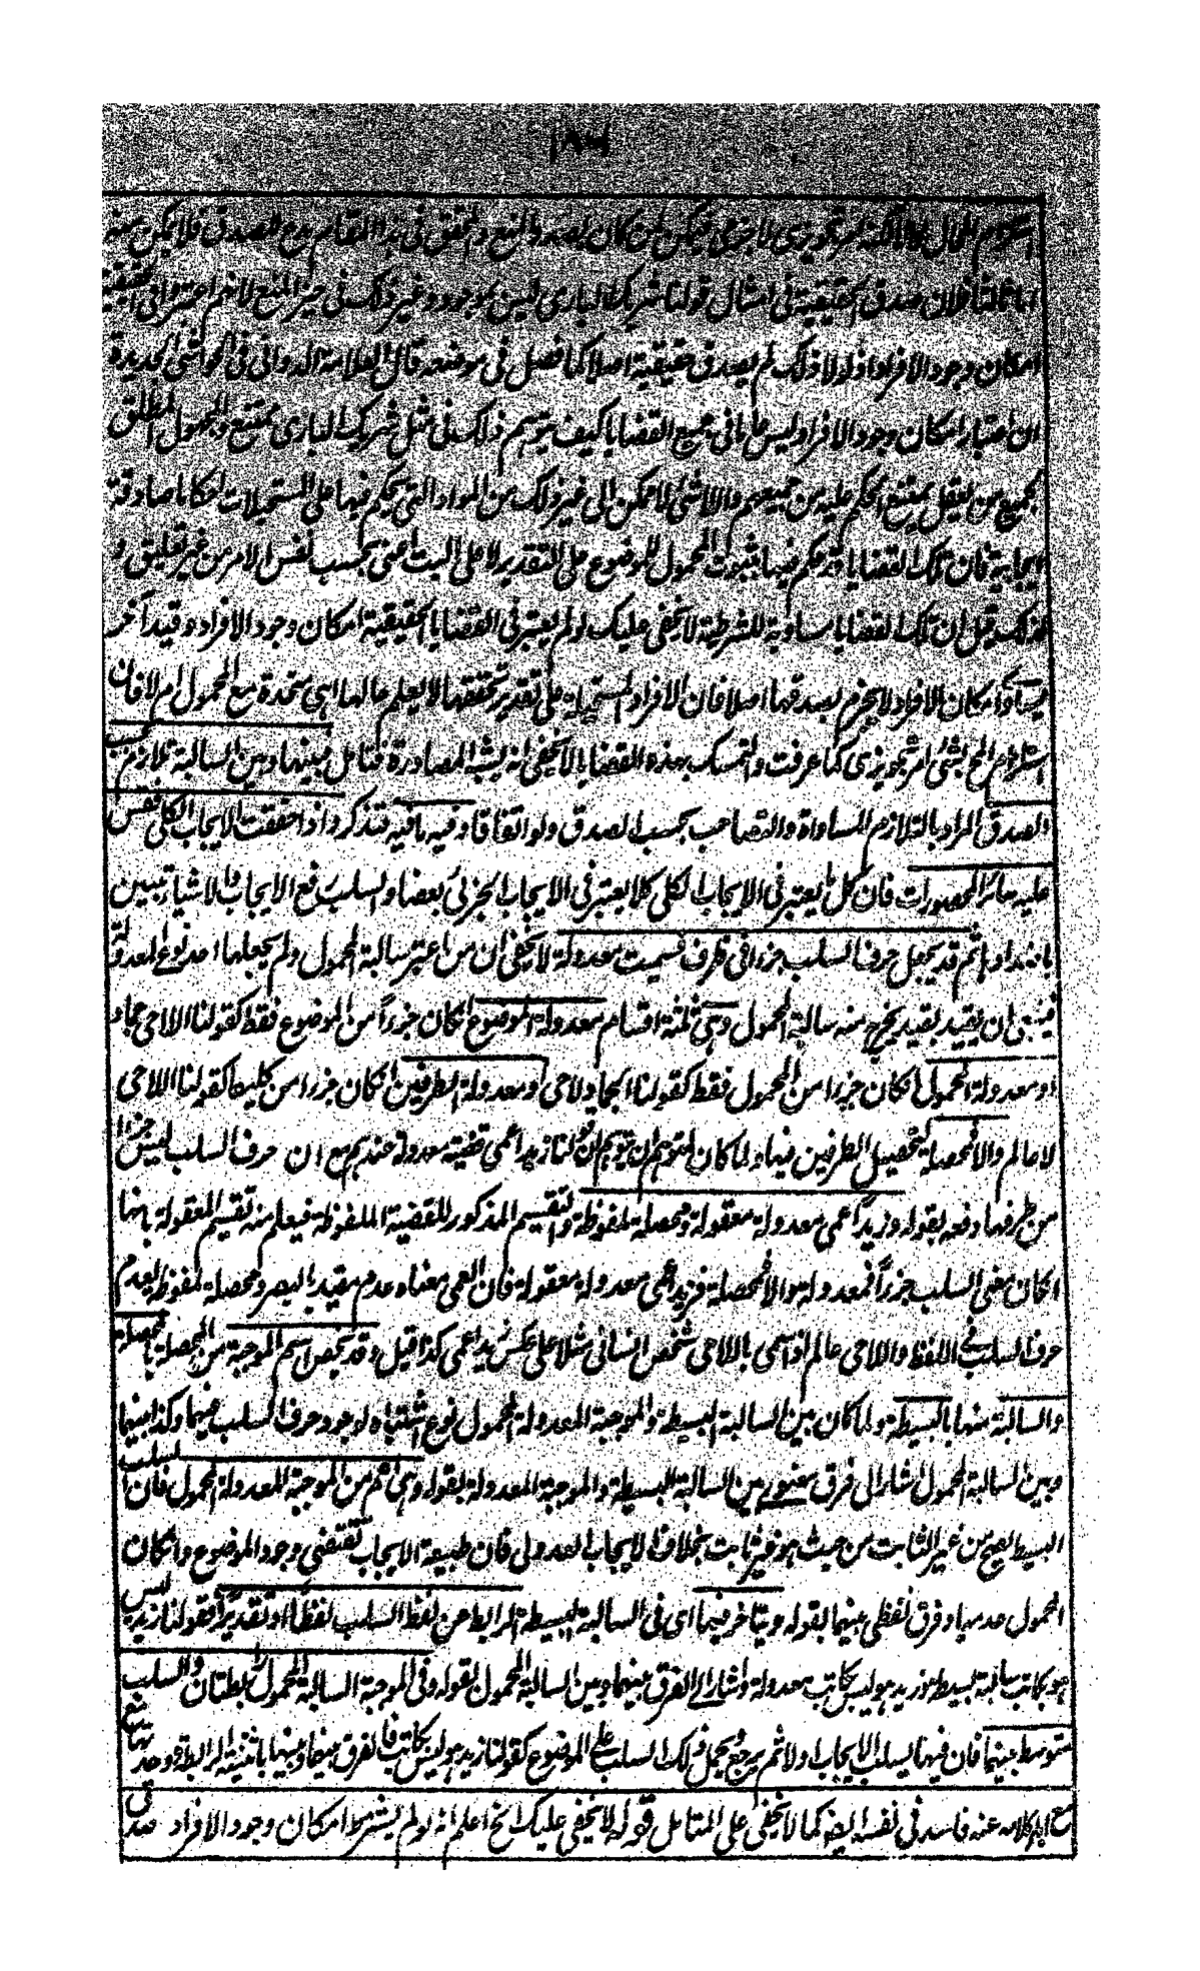 استلزام المحال للمحال امر تجويزى لا جزمى فيكفى لمن كان بصدد المنع والمحقق فى هذا المقام يدعى الصدق فلا يمكن منه
اما ثالثا فلان صدق الحقيقية فى امثال قولنا شريك البارى ليس بموجود وغير ذلك فى حيز المنع لانهم اعتبروا فى الحقيقية
امكان وجود الافراد اذ لولا ذلك لم يصدق حقيقية اصلا كما فصل فى موضعه قال العلامة الدوانى فى الحواشى الجديدة
ان اعتبار امكان وجود الافراد ليس عاما فى جميع القضايا كيف يتوهم ذلك فى مثل شريك البارى ممتنع والمجهول المطلق
لجميع من يعقل يمتنع الحكم عليه من جميعهم واللاشئ لا ممكن الى غير ذلك من المواد التى يحكم فيها على المستحيلات احكاما صادقة
ايجابية فان تلك القضايا قد حكم فيها بثبوت المحمول للموضوع على التقدير لا على البت اعنى بحسب نفس الامر من غير تعليق و
لذلك قيل ان تلك القضايا مساوية للشرطية لا يخفى عليك لو لم يعتبر فى القضايا الحقيقية امكان وجود الافراد وقيد آخر
يساوق امكان الافراد لا يجزم بصدقها اصلا فان الافراد المستحيلة على تقدير تحققها لا يعلم حالها اهى متحدة مع المحمول ام لا فان
استلزام المح لشئ امر تجويزى كما عرفت والتمسك بهذه القضايا لا يخفى انه يشبه المصادرة فتامل وبينها وبين السالبة تلازم بحسب
الصدق المراد بالتلازم المساواة والتصاحب بحسب الصدق ولو اتفاقا وفيه ما فيه فتذكر واذا حققت الايجاب الكلى فقس
عليه سائر المحصورات فان كل ما يعتبر فى الايجاب الكلى كلا يعتبر فى الايجاب الجزئى بعضا والسلب رفع الايجاب والاشياء تتبين
باضدادها ثم قد يجعل حرف السلب جزءا فى ظرف فسميت معدولة لا يخفى ان من اعتبر سالبة المحمول ولم يجعلها احد نوعى المعدولة
فينبغى ان يقيد بقيد يخرج منه سالبة المحمول وهى ثلثة اقسام معدولة الموضوع انكان جزءاً من الموضوع فقط كقولنا اللاحى جماد
او معدولة المحمول انكان جزءا من المحمول فقط كقولنا الجماد لا حى او معدولة الطرفين انكان جزءا من كليهما كقولنا اللاحى
لا عالم والا فمحصلة لتحصيل الطرفين فيها ولما كان لمتوهم ان يتوهم ان قولنا زيد اعمى قضية معدولة عندهم مع ان حرف السلب ليس جزءا
من طرفها دفعه بقوله وزيد اعمى معدولة معقولة ومحصلة ملفوظة والتقسيم المذكور للقضية الملفوظة فيعلم منه تقسيم المعقولة بانها
انكان معنى السلب جزءاً فمعدولة والا فمحصلة فزيد اعمى معدولة معقولة فان العمى معناه عدم مقيد بالبصر ومحصلة ملفوظة لعدم
حرف السلب فى اللفظ واللاحى عالم اذا سمى باللاحى شخص انسانى مثلا على عكس زيد اعمى كذا قيل وقد يخص اسم الموجبة من المحصلة بالمحصلة
والسالبة منها بالبسيطة ولما كان بين السالبة البسيطة والموجبة المعدولة المحمول نوع اشتباه لوجود حرف السلب فيهما وكذا بينها
وبين السالبة المحمول اشار الى فرق معنوى بين السالبة البسيطة والموجبة المعدولة بقوله وهى اعم من الموجبة المعدولة المحمول فان السلب
البسيط يصح من غير الثابت من حيث هو غير ثابت بخلاف الايجاب العدولى فان طبيعة الايجاب تقتضى وجود الموضوع وانكان
المحمول عدميا وفرق لفظى بينهما بقوله ويتاخر فيها اى فى السالبة البسيطة الرابط عن لفظ السلب لفظا او تقديرا فقولنا زيد ليس
هو بكاتب سالبة بسيطة وزيد هو ليس بكاتب معدولة واشار الى الفرق بينهما وبين السالبة المحمول بقوله وفى الموجبة السالبة المحمول رابطتان والسلب
متوسط بينهما فان فيها يسلب الايجاب اولا ثم يرجع ويحمل ذلك السلب على الموضوع كقولنا زيد هو ليس بكاتب فالفرق بينها وبينهما بتثنية الرابطة ووحدتها
مع اباء كلامه عنه فاسد فى نفسه ايضا كما لا يخفى على المتامل قوله لا يخفى عليك الخ اعلم انه لو لم يشترط امكان وجود الافراد صدق